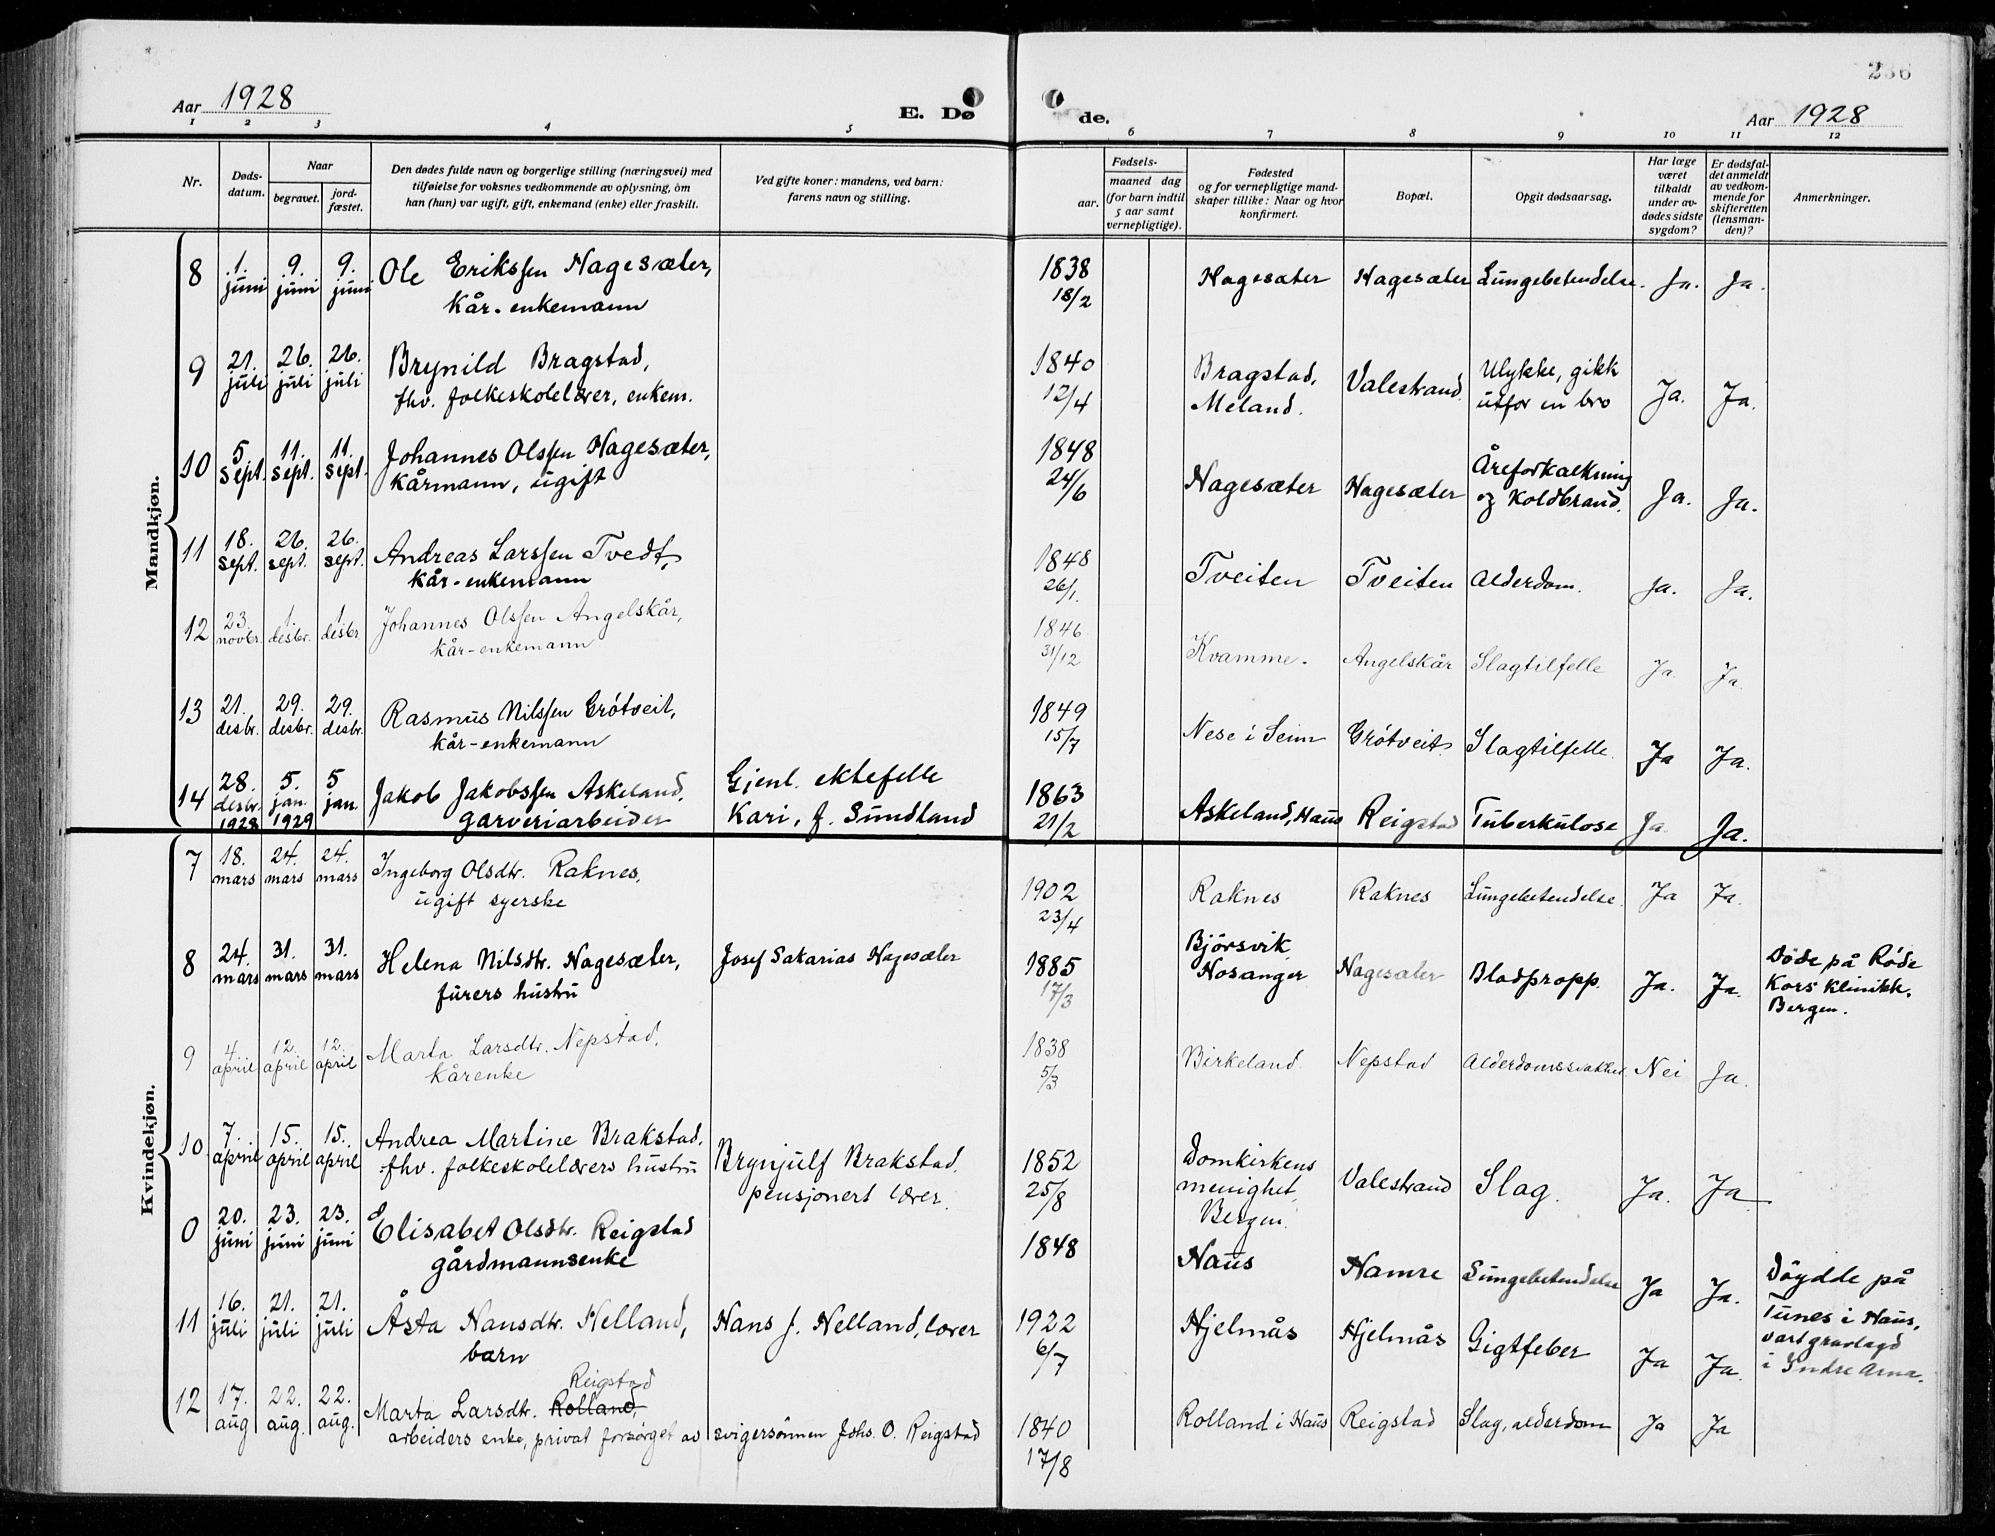 236
Aar 1928
E. Døde.
Aar 1928
1 2 3 4 5 6 7 8 9 10 11 12
Nr.
Dødsdatum.
Naar
begravet.
jordfæstet.
Den dødes fulde navn og borgerlige stilling (næringsvei) med
tilføielse for voksnes vedkommende av oplysning, om
han (hun) var ugift, gift, enkemand (enke) eller fraskilt.
Ved gifte koner: mandens, ved barn:
farens navn og stilling.
Fødsels-
aar.
maaned dag
(for barn indtil
5 aar samt
vernepligtige).
Fødested
og for vernepligtige mand-
skaper tillike: Naar og hvor
konfirmert.
Bopæl.
Opgit dødsaarsag.
Har læge
været
tilkaldt
under av-
dødes sidste
sygdom?
Er dødsfal-
det anmeldt
av vedkom-
mende for
skifteretten
(lensman-
den)?
Anmerkninger.
Mandkjøn.
8 1. juni 9. juni 9. juni Ole Erikssen Hagesæter, 1838 Hagesæter Hagesæter Lungebetendelse. Ja. Ja.
kår-enkemann 18/2
9 21. juli 26. juli 26. juli Brynild Bragstad, 1840 Bragstad, Valestrand Ulykke, gikk Ja. Ja.
fhv. folkeskolelærer, enkem. 12/4 Meland. utfor en bro
10 5. sept. 11. sept. 11. sept. Johannes Olssen Hagesæter, 1848 Hagesæter Hagesæter Åreforkalkning Ja. Ja.
kårmann, ugift 24/6 og koldbrand.
11 18. sept. 26. sept. 26. sept. Andreas Larssen Tvedt, 1848 Tveiten Tveiten Alderdom. Ja. Ja.
kår-enkemann 26/1.
12 23. novbr. 1. desbr. 1. desbr. Johannes Olssen Angelskår, 1846 Kvamme. Angelskår Slagtilfelle Ja. Ja.
kår-enkemann 31/12
13 21. desbr. 29. desbr. 29. desbr. Rasmus Nilssen Gròtveit, 1849 Nese i Seim Gròtveit Slagtilfelle. Ja Ja.
kår-enkemann 15/7
14 28. desbr. 1928 5. jan. 1929 5 jan. Jakob Jakobssen Askeland, Gjenl. ektefelle 1863 Askeland, Haus Reigstad Tuberkulose Ja. Ja.
garveriarbeider Kari, f. Sundland 21/2
Kvindekjøn.
7 18. mars 24. mars 24. mars Ingeborg Olsdtr. Raknes, 1902 Raknes Raknes Lungebetendelse. Ja Ja.
ugift syerske 23/4
8 24. mars 31. mars 31. mars Helena Nilsdtr. Hagesæter, Josef Sakarias Hagesæter 1885 Bjòrsvik, Hosanger Hagesæter Blodpropp. Ja. Ja. Døde på Røde
furers hustru 17/3 Kors klinikk,
Bergen.
9 4. april 12. april 12. april Marta Larsdtr. Nepstad, 1838 Birkeland Nepstad Alderdomssvakhet Nei Ja.
kårenke 5/3
10 7. april 15. april 15. april Andrea Martine Brakstad, Brynjulf Brakstad, 1852 Domkirkens Valestrand Slag. Ja. Ja
fhv. folkeskolelærers hustru pensjonert lærer. 25/8 menighet,
Bergen.
0 20. juni 23. juni 23. juni Elisabet Olsdtr. Reigstad 1848 Haus Hamre Lungebetendelse Ja Ja. Dòydde på
gårdmannsenke Tunes i Haus,
vart gravlagd
i Indre Arna.
11 16. juli 21. juli 21. juli Åsta Hansdtr. Helland, Hans J. Helland, lærer 1922 Hjelmås Hjelmås Gigtfeber Ja Ja.
barn 6/7
12 17. aug 22. aug. 22. aug. Marta Larsdtr. Rolland, Reigstad 1840 Rolland i Haus Reigstad Slag, alderdom Ja Ja
arbeiders enke, privat forsørget av svigersønnen Johs. O. Reigstad 17/8